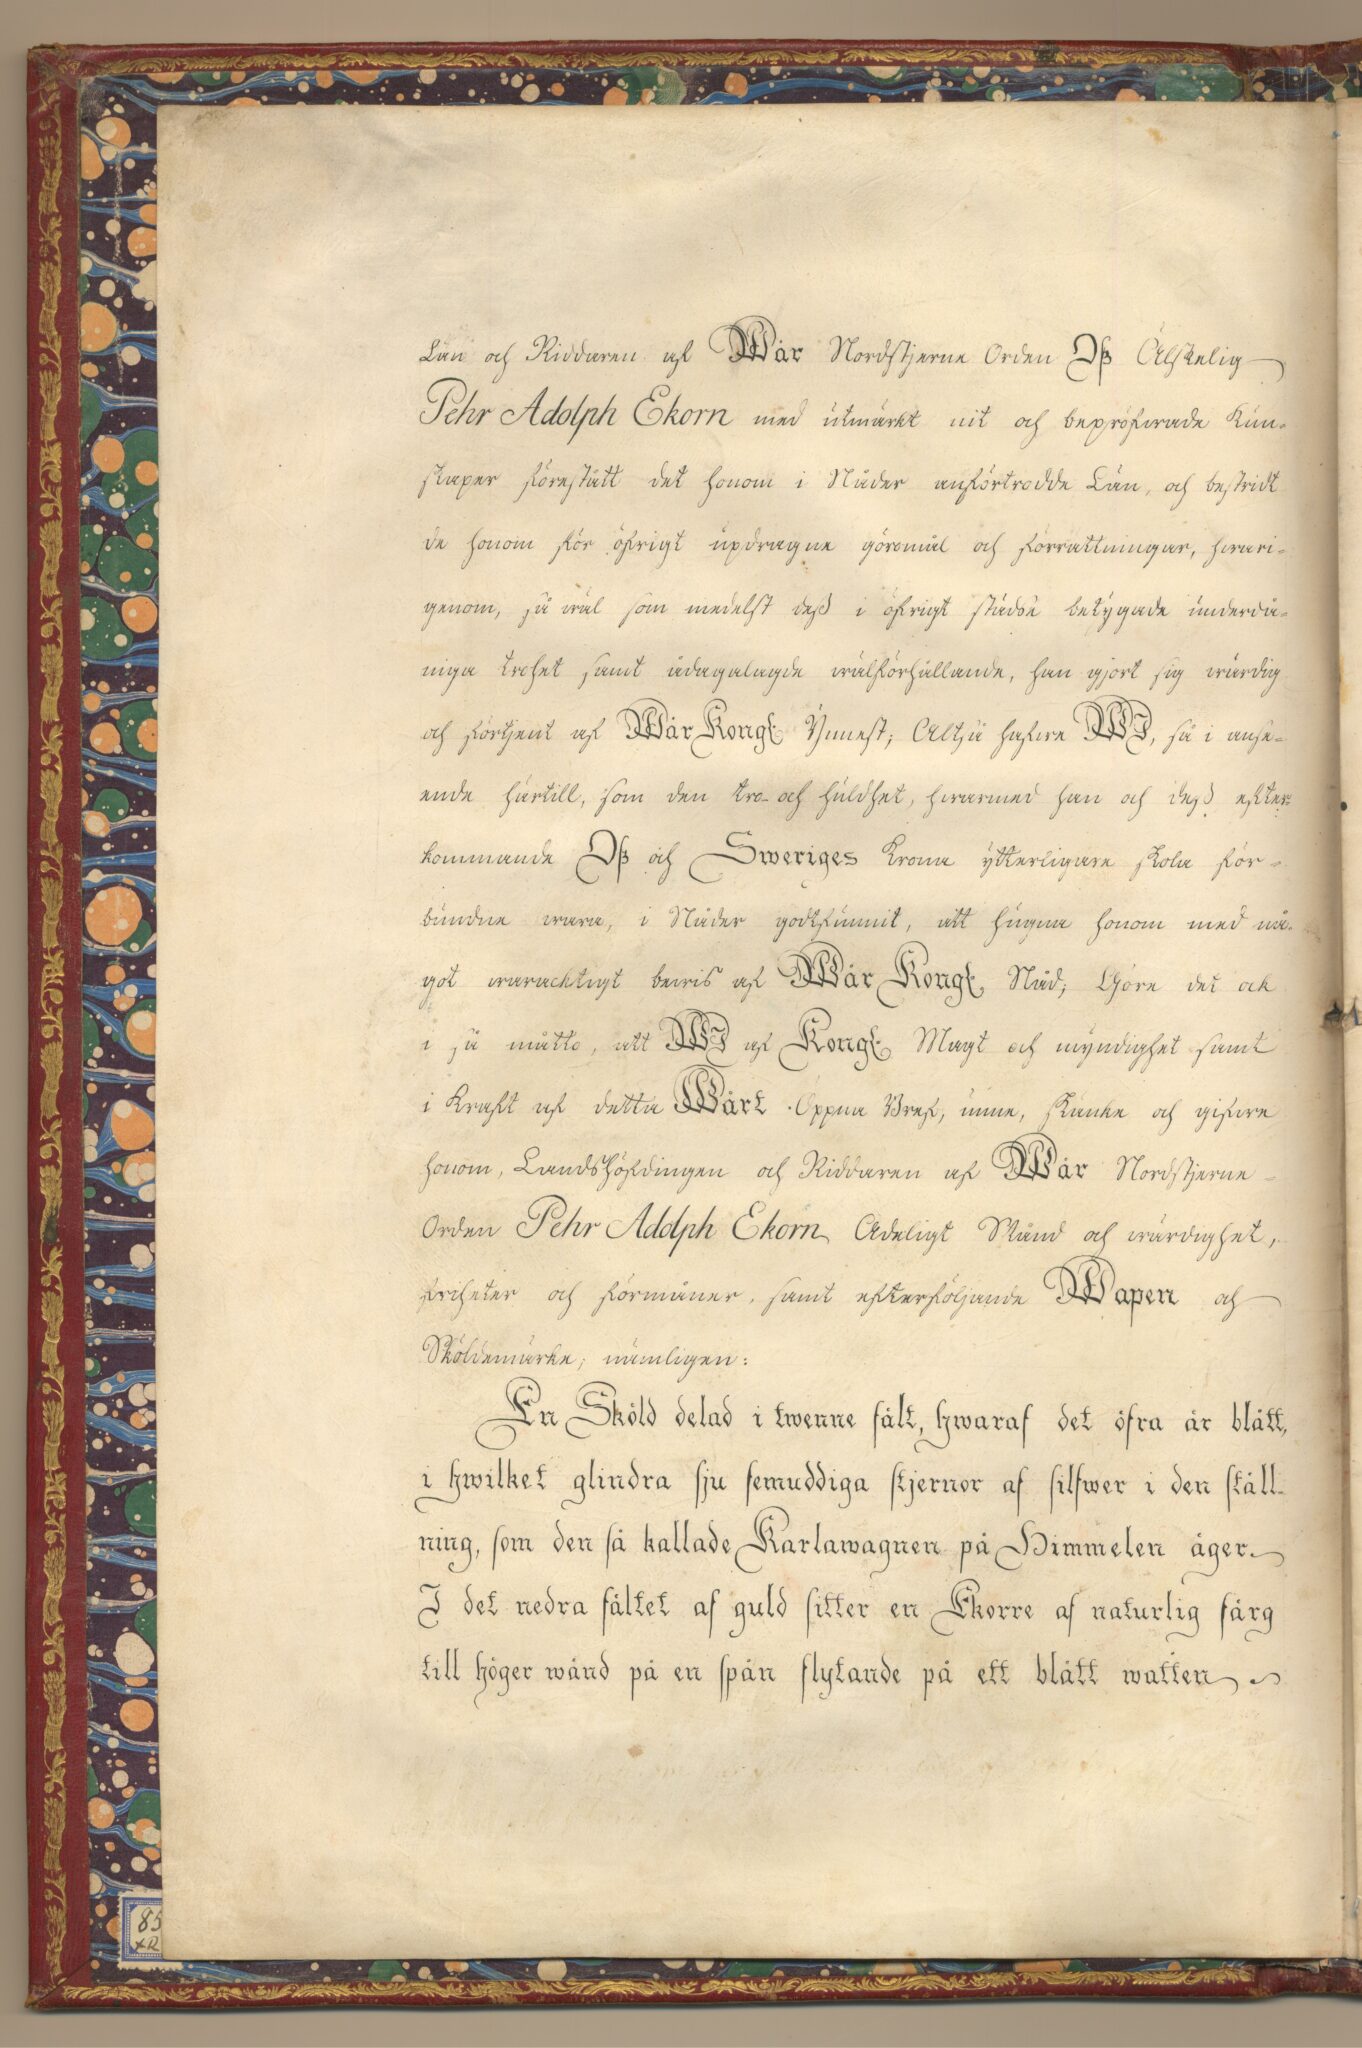 Län och Riddaren af Wår Nordstjerne Orden Oß Älskelig
Pehr Adolph Ekorn med utmärkt nit och bepröfwade Kun-
skaper förestått det honom i Nåder anförtrodde Län, och bestridt
de honom för öfrigt updragne göromål och förrättningar, hwari-
genom, så wäl som medelst deß i öfrigt städse betygade underdå-
niga trohet samt ådagalagde wälförhållande, han gjort sig wärdig
och förtjent af Wår Kongl. Ynnest; Altså hafwe WJ, så i anse-
ende härtill, som den tro- och huldhet, hwarmed han och deß efter-
kommande Oß och Sweriges Krona ytterligare skola för-
bundne wara, i Nåder godtfunnit, att hugna honom med nå-
got warachtigt bewis af Wår Kongl. Nåd; Göre det ock
i så måtto, att WJ af Kongl. Magt och myndighet samt
i Kraft af detta Wårt Öppna Bref, unne, skänke och gifwe
honom, Landshöfdingen och Riddaren af Wår Nordstjerne
Orden Pehr Adolph Ekorn Adeligt Stånd och wärdighet,
friheter och förmåner, samt efterföljande Wapen och
Sköldemärke; nämligen:
En Sköld delad i twenne fält, hwaraf det öfra är blått,
i hwilket glindra sju femuddiga stjernor af silfwer i den ställ-
ning, som den så kallade Karlawagnen på Himmelen äger.
I det nedra fältet af guld sitter en Ekorre af naturlig färg
till höger wänd på en spån flytande på ett blått watten
85